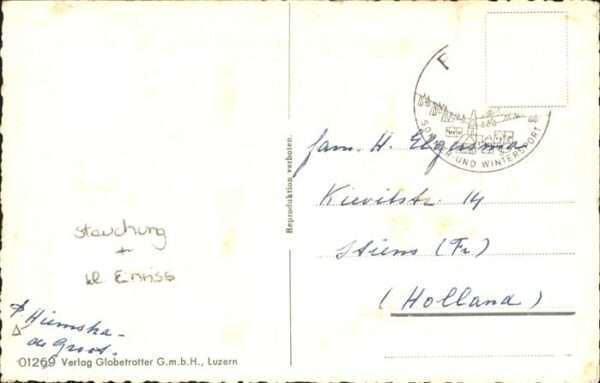 F
SOMMER- UND WINTERSPORT
Reproduktion verboten.
fam. H. Elgersma
Kievitstr. 14
Stiens (Fr.)
(Holland)
Stauchung
+
kl Einriss
Hiemstra -
de Groot.
01269 Verlag Globetrotter G.m.b.H., Luzern